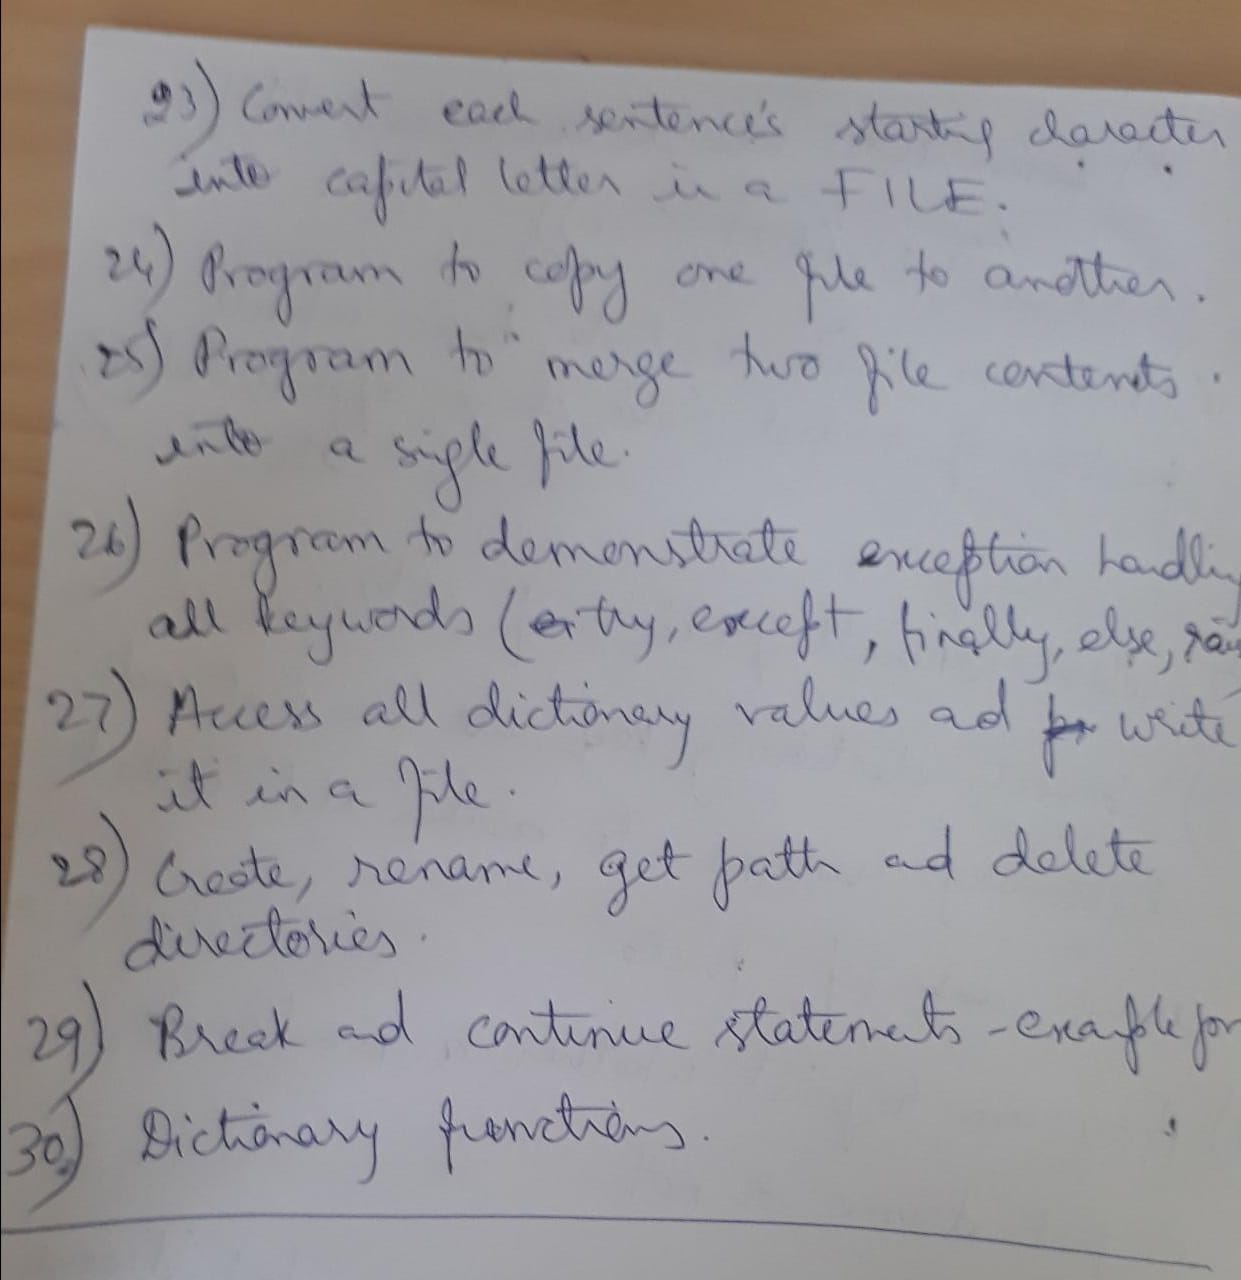 23) Convert each sentence's starting character
into capital letter in a FILE.
24) Program to copy one file to another.
25) Program to merge two file contents
into a single file.
26) Program to demonstrate exception handling
all keywords (try, except, finally, else,
27) Access all dictionary values ad write
it in a file.
28) Create, rename, get path ad delete
directories.
29) Break ad continue statements - example for
30) Dictionary functions.